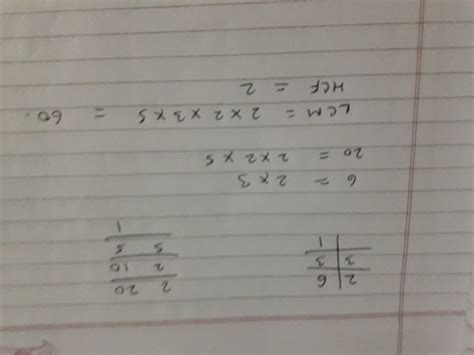 2 | 6
3 | 3
1
2 20
2 10
5 5
1
6 = 2 x 3
20 = 2 x 2 x 5
LCM = 2 x 2 x 3 x 5 = 60.
HCF = 2